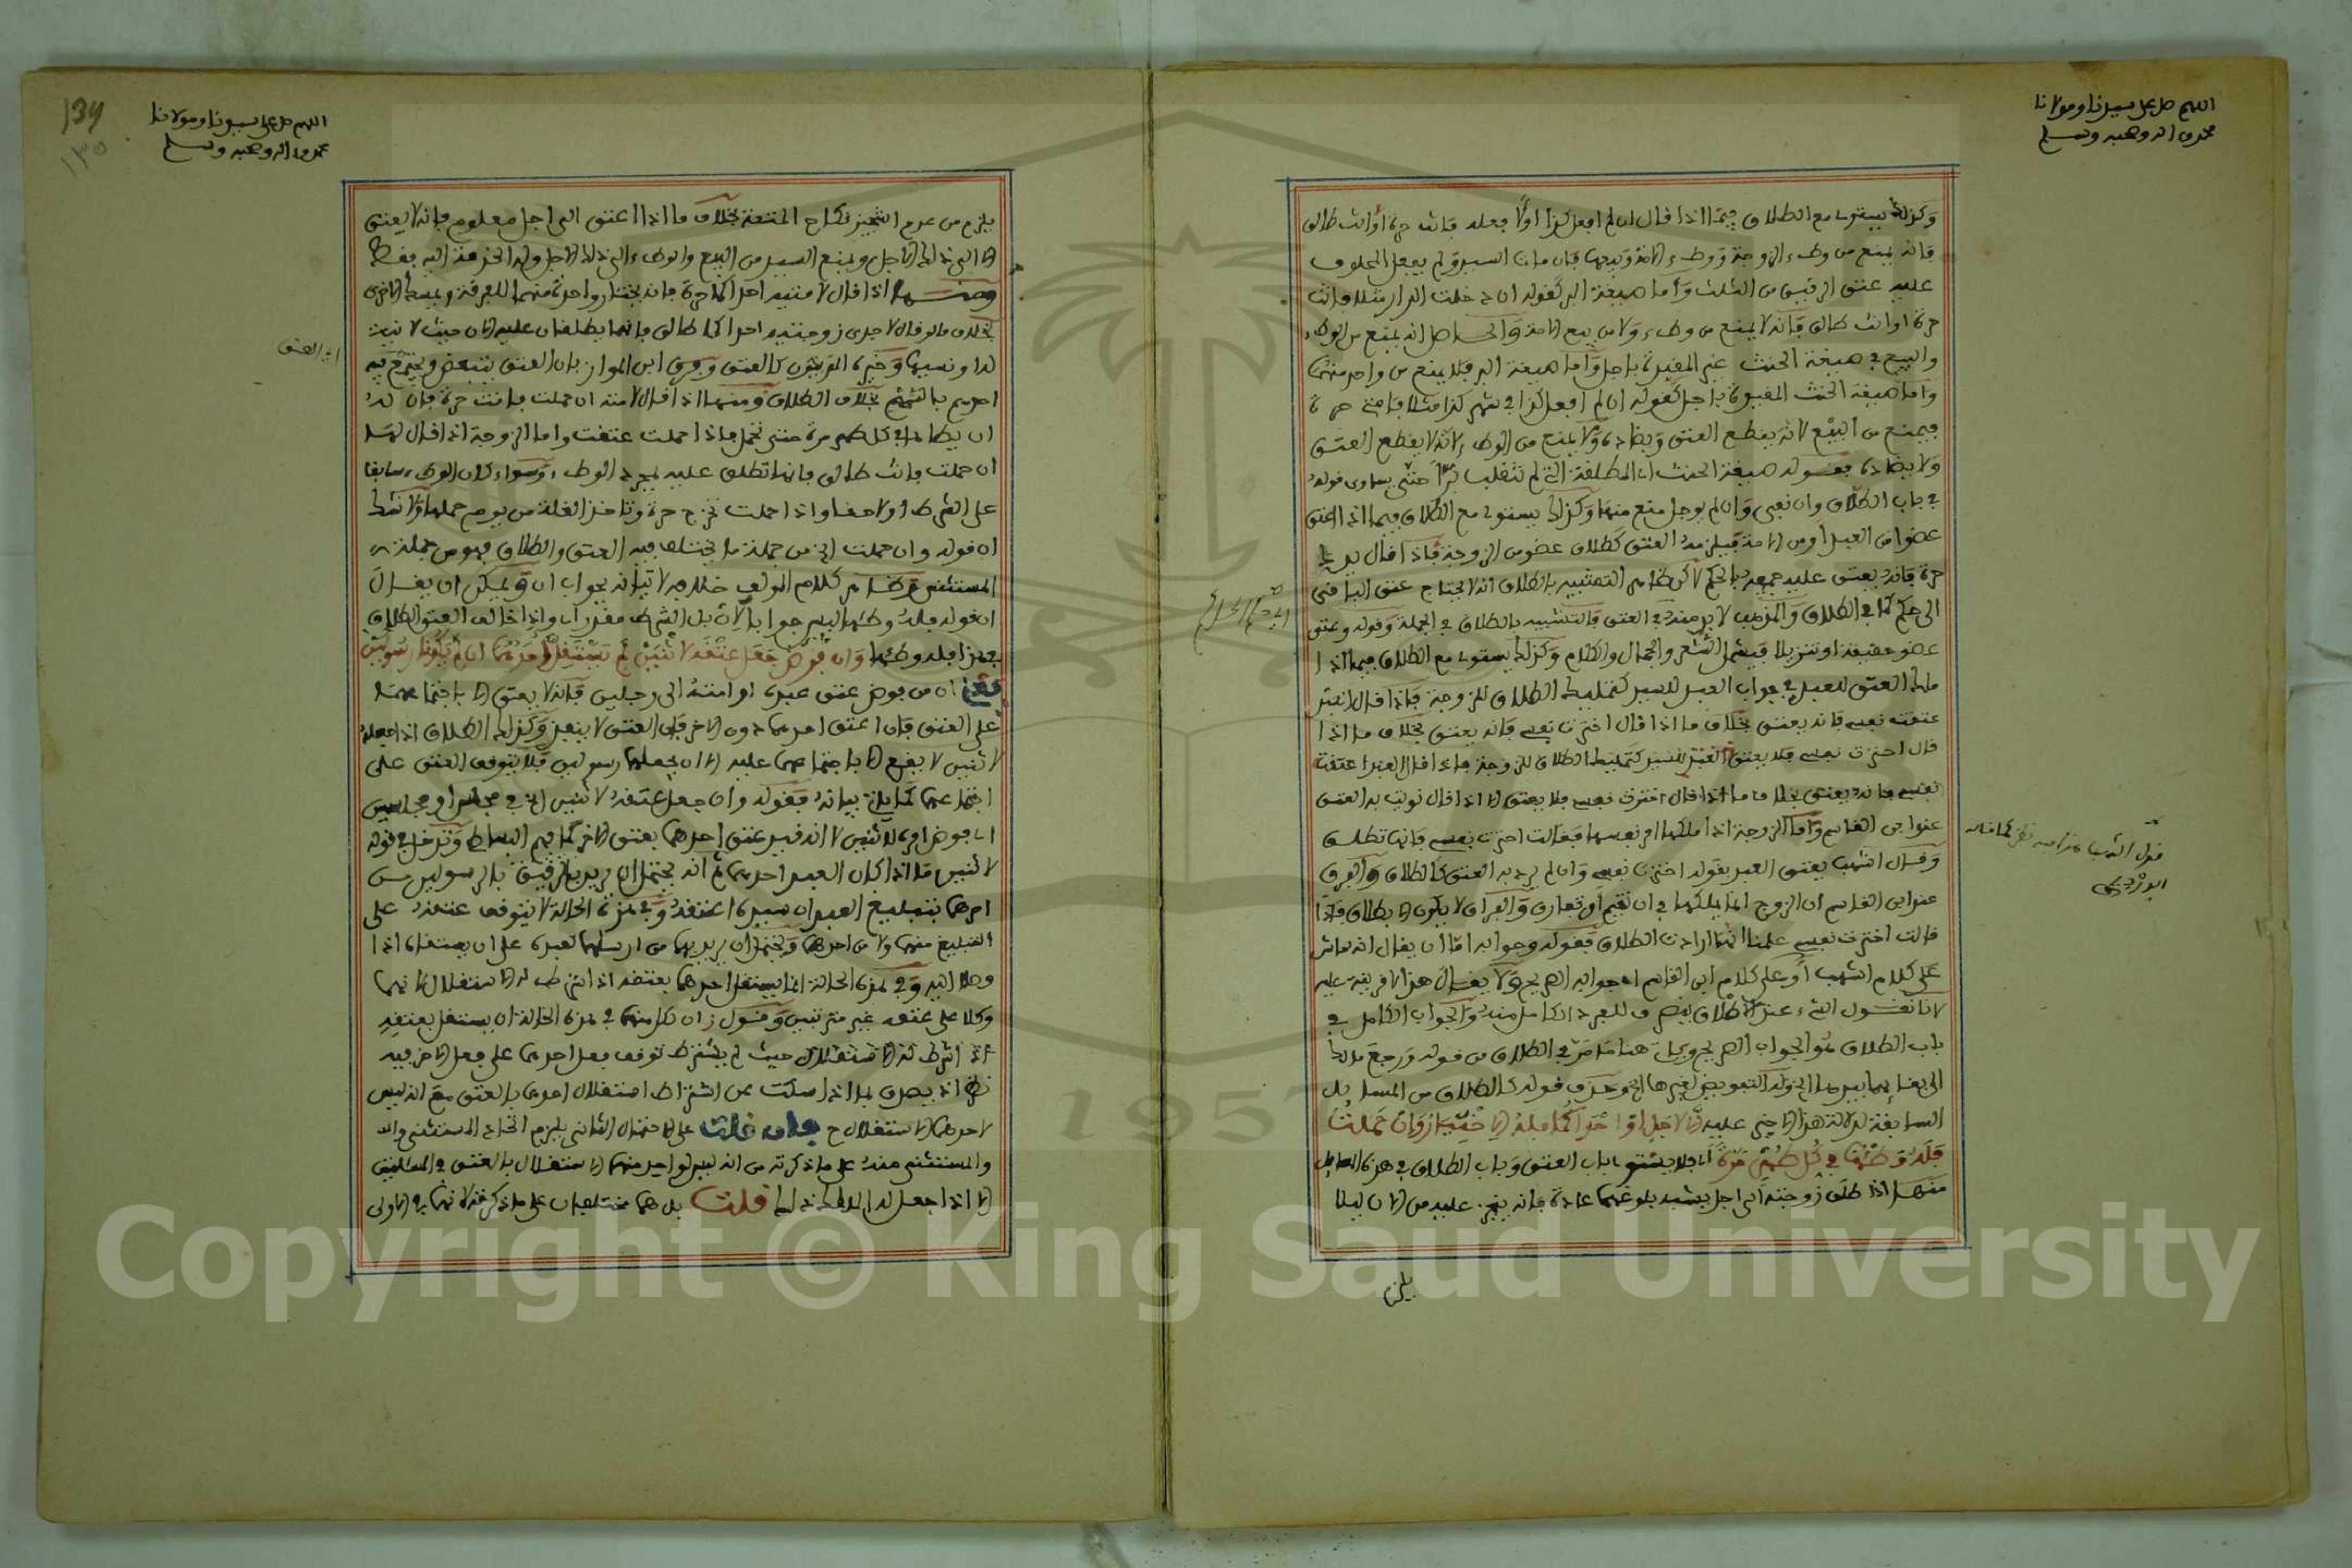 اللهم صل على سيدنا ومولانا
محمد وءاله وصحبه وسلم
وكذلك يستوى مع الطلاق فيما اذا قال ان لم افعل كذا اولا فعلنه فانت حرة أو انت طالق
فانه يمنع من وطء الزوجة ووطء الامة وبيعها فان مات السيد ولم يفعل المحلوف
عليه عتق الرقيق من الثلث وأما صيغة البر كقوله ان دخلت الدار مثلا فانت
حرة او انت طالق فانه لا يمنع من وطء ولا من بيع الامة والحاصل انه يمنع من الوطء
والبيع في صيغة الحنث غير المقيدة باجل وأما صيغة البر فلا يمنع من واحد منهما
وأما صيغة الحنث المقيدة باجل كقوله ان لم افعل كذا في شهر كذا مثلا فامتى حرة
فيمنع من البيع لانه يقطع العتق ويضاده ولا يمنع من الوطء لانه لا يقطع العتق
ولا يضاده فقوله صيغة الحنث اى المطلقة التى لم تنقلب برا حتى يساوى قوله
في باب الطلاق وان نفى ولم يوجل منع منها وكذلك يستوى مع الطلاق فيما اذا اعتق
عضوا من العبد أو من الامة فيلزمه العتق كطلاق عضو من الزوجة فاذا قال يدك
حرة فانه يعتق عليه جميعه بالحكم لاكن ظاهر التشبيه بالطلاق انه لا يحتاج عتق الباقى
الى حكم كما في الطلاق والمذهب لا بد منه في العتق فالتشبيه بالطلاق في الجملة وقوله وعتق
عضو حقيقة او تنزيلا فيشمل الشعر والجمال والكلام وكذلك يستوى مع الطلاق فيما اذا
ملك العتق للعبد في جواب العبد للسيد كتمليك الطلاق للزوجة فاذا قال
عتقت نفسى فانه يعتق بخلاف ما اذا قال اخترت نفسى فانه يعتق بخلاف ما اذا
قال اخترت نفسى فلا يعتق العبد للسيد كتمليك الطلاق للزوجة فاذا قال العبد اعتقت
نفسى فانه يعتق بخلاف ما اذا قال اخترت نفسى فلا يعتق الا اذا قال نويت به العتق
عند ابن القاسم واما الزوجة اذا ملكها امر نفسها فقالت اخترت نفسى فانها تطلق
وقال اشهب يعتق العبد بقوله اخترت نفسى وان لم يرد به العتق كالطلاق والفرق
عند ابن القاسم ان الزوج انما يملكها في ان تقيم أو تفارق والفراق لا يكون الا بطلاق فاذا
قالت اخترت نفسى علمنا انها ارادت الطلاق فقوله وجوابه اما ان يقال انه ماش
على كلام اشهب أو على كلام ابن القاسم اى جوابه الصريح ولا يقال هذا لا قرينة عليه
لانا نقول الشىء عند الاطلاق ينصرف للفرد الكامل منه والجواب الكامل في
باب الطلاق هو الجواب الصريح ويجرى هنا ما مر في الطلاق من قوله ورجع مالك
الى بقائهما بيدها الخ وله التفويض لغيرها الخ وحذف قوله كالطلاق من المسايل
السابقة لدلالة هذا الاخير عليه إلا لأجل أو احداكما فله الاختيار وان حملت
فله وطئها في كل طهر مرة أى فلا يستوى باب العتق وباب الطلاق في هذه المسايل
منها اذا طلق زوجته الى اجل يشبه بلوغهما عادة فانه ينجز عليه من الان ليلا
يلزم
قول اشهب
اللهم صل على سيدنا ومولانا
محمد وءاله وصحبه وسلم
139
١٣٥
يلزم من عدم التنجيز نكاح المتعة بخلاف ما اذا اعتق الى اجل معلوم فانه لا يعتق
الا الى ذلك الاجل ويمنع السيد من البيع والوطء الى ذلك الاجل وله الخدمة اليه فقط
ومنها اذا قال لامتيه احداكما حرة فانه يختار واحدة منهما للعرفة ويمسك الاخرى
بخلاف ما لو قال لاحدى زوجتيه احداكما طالق فانهما يطلقان عليه الان حيث لا نية
له او نسيها وخيره المدنيون كالعتق وفرق ابن المواز بان العتق يتبعض ويجمع فيه
احدهم بالسهم بخلاف الطلاق ومنها اذا قال لامته ان حملت فانت حرة فان له
ان يطأها في كل طهر مرة حتى تحمل فاذا حملت عتقت واما الزوجة اذا قال لها
ان حملت فانت طالق فانها تطلق عليه بمجرد الوطء وسواء كان الوطء سابقا
على الشرط او لاحقا واذا حملت تخرج حرة وتاخذ الغلة من يوم حملها ولا شك
ان قوله وان حملت الخ من جملة ما يختلف فيه العتق والطلاق فهو من جملة
المستثنى وظاهر كلام المولف خلافه لاتيانه بجواب ان ويمكن ان يقال
ان قوله فله وطئها ليس جوابا لان بل الشرط مقدر أى واذا خالف العتق الطلاق
في هذا فله وطئها وان فوض جعل عتقه لاثنين لم يستقل أحدهما ان لم يكونا رسولين
يعنى ان من فوض عتق عبده او امته الى رجلين فانه لا يعتق الا باجتماعهما
على العتق فان اعتق احدهما دون الاخر فان العتق لا ينفذ وكذلك الطلاق اذا جعله
لاثنين لا يقع الا باجتماعهما عليه الا ان يجعلهما رسولين فلا يتوقف العتق على
اجتماعهما كما ياتى بيانه فقوله وان جعل عتقه لاثنين الخ في مجلس او مجلسين
اى فوض امره لاثنين لا انه قيد عتق احدهما بعتق الاخر كما فهم البساطى وتدخل في قوله
لاثنين ما اذا كان العبد احدهما ثم انه يحتمل ان يريد بالرسولين من
امرهما بتبليغ العبد ان سيده اعتقه وفي هذه الحالة لا يتوقف عتقه على
التبليغ منهما ولا من احدهما ويحتمل ان يريد بهما من ارسلهما لعبده على ان يعتقاه اذا
وصلا اليه وفي هذه الحالة انما يستقل احدهما بعتقه اذا شرط له الاستقلال لانهما
وكلا على عتقه غير مترتبين ونقول ان لكل منهما في هذه الحالة ان يستقل بعتقه
ان اشترط له الاستقلال حيث لم يشترط توقف فعل احدهما على فعل الاخر فيه
نظر اذ يصدق بما اذا سكت عن اشتراط استقلال احدهما بالعتق مع انه ليس
لاحدهما الاستقلال ح فإن قلت على الاحتمال الثانى يلزم اتحاد المستثنى
والمستثنى منه على ما ذكرته من انه ليس لواحد منهما الاستقلال بالعتق في المسالتين
الا اذا جعل له المالك ذلك قلت بل هما مختلفان على ما ذكرته لانهما في الاولى
اى العتق